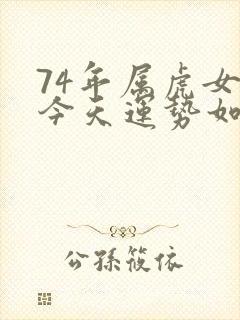 74年属虎女
今天運勢如
公孫筱依